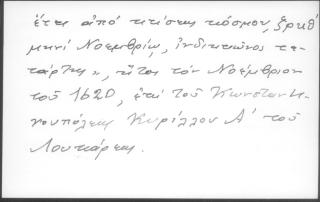 ἔτει ἀπό κτίσεως κόσμου ͵ζρκθ´
μηνί Νοεμβρίῳ, ἰνδικτιῶνος τε-
τάρτης», ἤτοι τόν Νοέμβριον
τοῦ 1620, ἐπί τοῦ Κωνσταντι-
νουπόλεως Κυρίλλου Α´ τοῦ
Λουκάρεως.